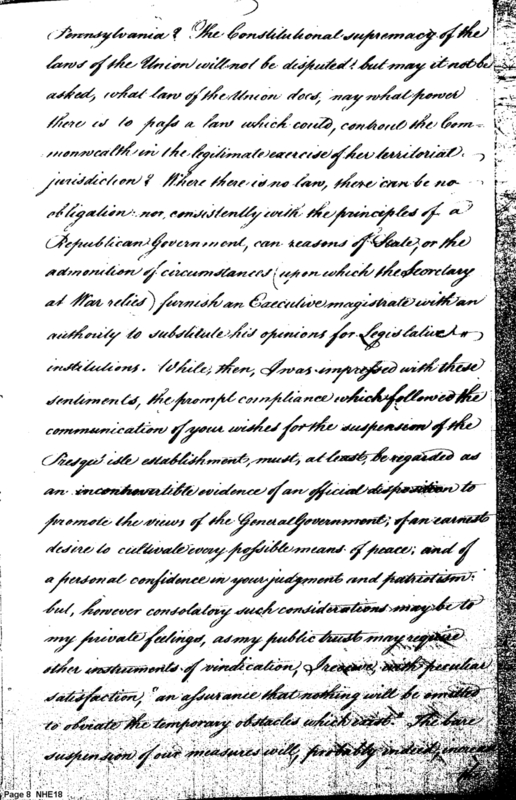 Pennsylvania? The Constitutional supremacy of the
laws of the Union will not be disputed: but may it not be
asked, what law of the Union does, nay what power
there is to pass a law which could, controul the Com-
monwealth in the legitimate exercise of her territorial
jurisdiction? Where there is no law, there can be no
obligation: nor, consistently with the principles of a
Republican Government, can reasons of State, or the
admonition of circumstances (upon which the Secretary
at War relies) furnish an Executive magistrate with an
authority to substitute his opinions for Legislative
institutions. While, then, I was impressed with these
sentiments, the prompt compliance which followed the
communication of your wishes for the suspension of the
Presqu' isle establishment, must, at least, be regarded as
an incontrovertible evidence of an official disposition to
promote the views of the General Government; of an earnest
desire to cultivate every possible means of peace; and of
a personal confidence in your judgment and patriotism:
but, however consolatory such considerations may be to
my private feelings, as my public trust may require
other instruments of vindication, I receive, with peculiar
satisfaction, "an assurance that nothing will be omitted
to obviate the temporary obstacles which exist." The bare
suspension of our measures will, probably indeed, increase
Page 8 NHE18